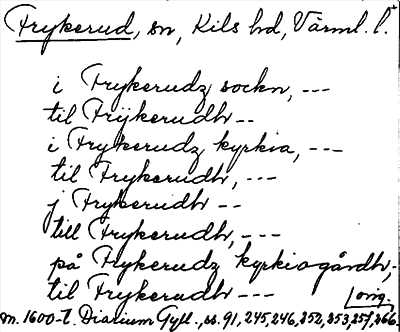 Frykerud, sn, Kils hd, Värml. l.
i Frykerudz sockn, ---
til Frÿkerudh --
i Frykerudz kyrkia, ---
til Frykerudh, ---
j Frykerudh --
till Frykerudh, ---
på Frykerudz kyrkiogårdh,-
til Frykerudh ---
orig.
m. 1600-t. Diarium Gyll., ss. 91, 245, 246, 252, 253, 257, 266.